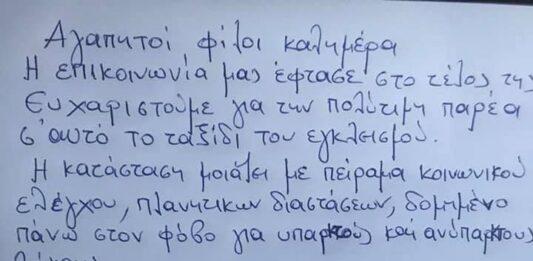 Αγαπητοί φίλοι καλημέρα
Η επικοινωνία μας έφτασε στο τέλος της
Ευχαριστούμε για την πολύτιμη παρέα
σ' αυτό το ταξίδι του εγκλεισμού.
Η κατάσταση μοιάζει με πείραμα κοινωνικού
ελέγχου, πλανητικών διαστάσεων, δομημένο
πάνω στον φόβο για υπαρκτούς και ανύπαρκτους